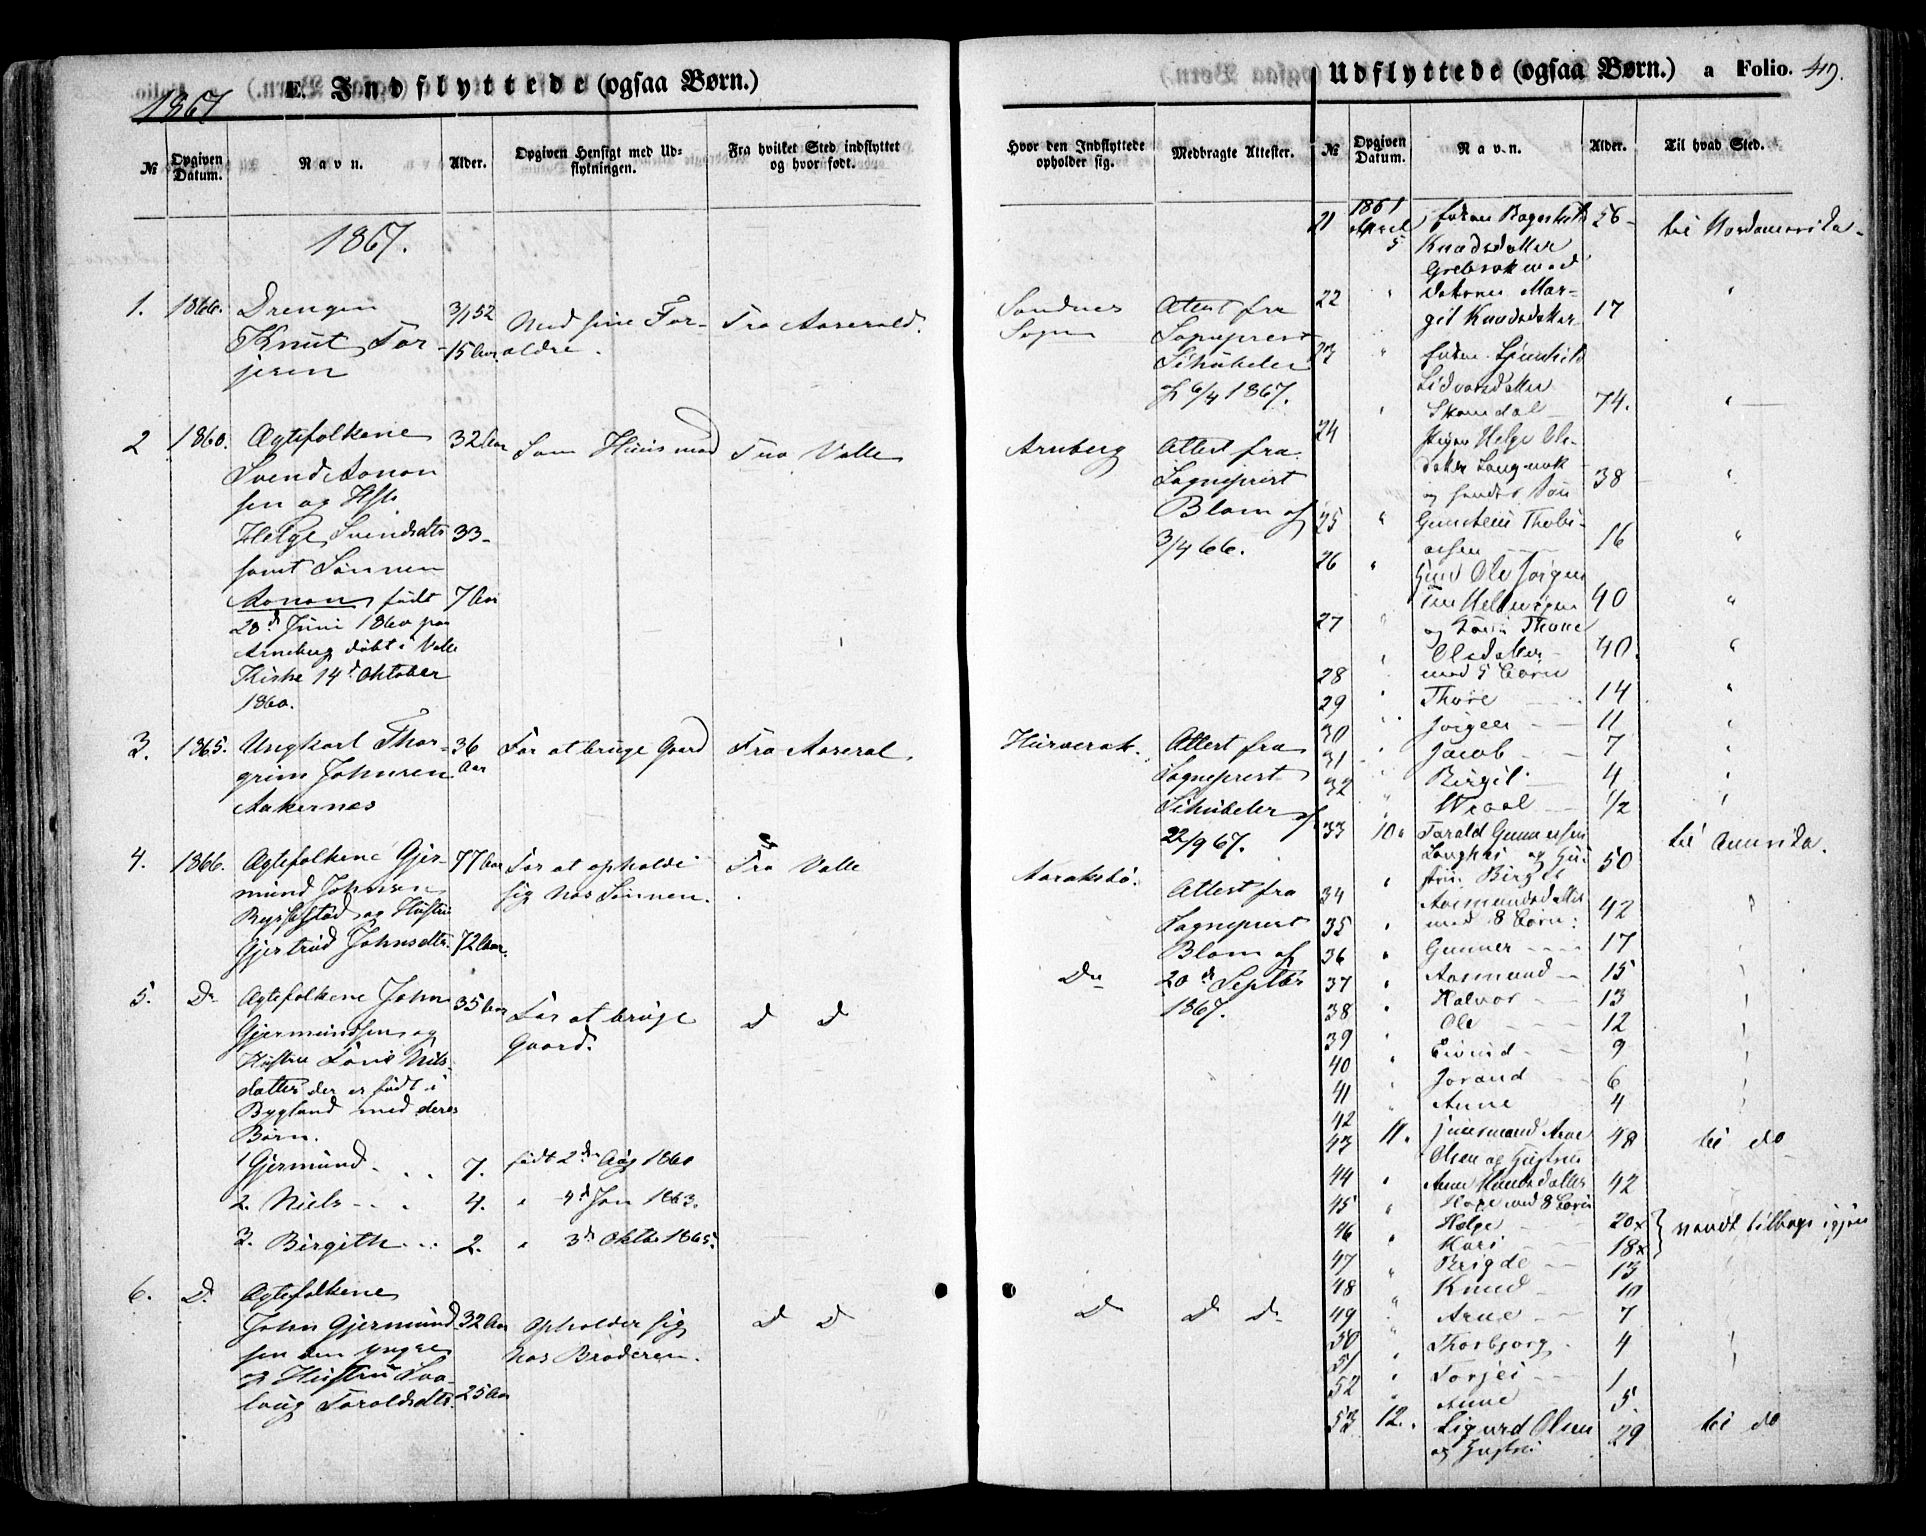 1867
E. Indflyttede (ogsaa Børn.)
№
Opgiven Datum.
Navn.
Alder.
Opgiven Hensigt med Udflytningen.
Fra hvilket Sted indflyttet og hvor født.
1867.
1. 1866. Drengen 3/1 52 Med sine For- Fra Aaserald.
Knut Tor- 15 Aar. ældre.
jesen
2 1860. Ægtefolkene 32 Aar Som Huusmand Fra Valle
Svend Aanon
sen og Hst.
Helge Svendsdtr 33-
samt Sønnen
Aanon, født 7 Aar
28d Juni 1860 paa
Arneberg døbt i Valle
Kirke 14d Oktober
1860.
3. 1865. Ungkarl Thor- 36 For at bruge Gaard Fra Aaseral
grim Johnsen Aar
Aakernes
4. 1866. Ægtefolkene Gjer- 77 Aar For at opholde Fra Valle
mund Johnsen sig hos Sønnen.
Rysstad og Hustru
Gjertrud Johnsdtr. 72 Aar.
5. Do Ægtefolkene John 35 Aar For at bruge D D
Gjermundsen og Gaard.
Hustru Tone Nils-
datter der er født i
Bygland med deres
Børn.
1 Gjermund 7. født 2den Aug 1860
2. Niels 4. " 4d Jan 1863.
3. Birgith 2. " 3d Oktbr 1865.
6. D. Ægtefolkene
John Gjermund- 32 Aar opholder sig D D
sen den yngre hos Broderen.
og Hustru Svalaug Taraldsdtr. 25 Aar
Hvor den Indflyttede opholder sig.
Medbragte Attester.
Sandnes Attest fra
Sogn Sognprest
Schübeler
af 6/4 1867.
Arneberg Attest fra
Sogneprest
Blom af
3/4 66.
Hurverak. Attest fra
Sogneprest
Schübeler af
22/9 67.
Aaraksbø. Attest fra
Sogneprest
Blom af
Do 20de Septbr
1867.
D D D
Udflyttede (ogsaa Børn.) a Folio. 49.
№
Opgiven Datum.
Navn.
Alder.
Til hvad Sted.
21 1861 April 5 Ragnhild 56 til Nordamerika
Knudsdatter
22 " Datter Mar- "
git Knudsdatter 17
23 "
Skomdal 74. "
24 Helge Ols-
datter Langerak 38 "
25 " Gunsteen Thobi-
asen 16 "
26 " Ole Jørgen
40 "
27 " og Thone
Olsdatter 40. "
28 med 5 Børn
29 " Thore 14 "
30 " Jørgen 11 "
31 " Jacob 7 "
32 " Birgit 4 "
" 1/2 "
33 10. Tarald Gunnersen til Amerika.
og Hu- 50
34 " stru Birgit
Aasmundsdatter 42 "
35 " med 8 Børn:
36 " Gunner 17
37 " Aasmund 15 "
38 " Halvor 13 "
39 " Ole 12 "
40 " Eivind 9 "
41 " Jorand 6 "
42 " Anne 4 "
43 11. Arne 48 til do
Olsen og Hustru
44 " Anne Knudsdatter 42
45 " med 8 Børn
46 " Helge 20x } vendt tilbage igjen
47 " Kari 18x
48 " Brigde 13
49 " Knud 10
50 " Arne 7
51 " Thorbjørg 4
52 " Torjei 1
" Anne 5.
53 12. Sigurd Olsen 29 til do
og Hustru